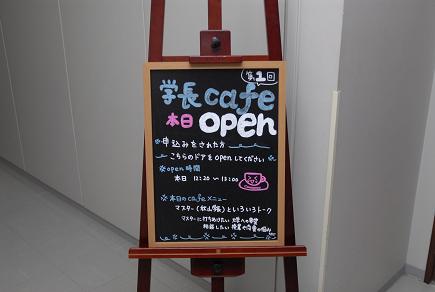 第1回
学長cafe
本日open
申込みをされた方
こちらのドアをopenしてください
※open時間
本日 12:20〜13:00
※本日のcafeメニュー
マスター(秋山学長)といろいろトーク
マスターに打ちあけたい 大学への要望
相談したい 授業や将来の悩み